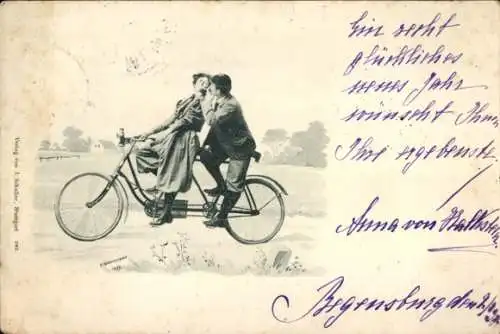 Ein recht
glückliches
neues Jahr
wünscht Ihnen
Ihre ergebenste
Anna von
Regensburg den
Verlag von J. Schaller, Stuttgart